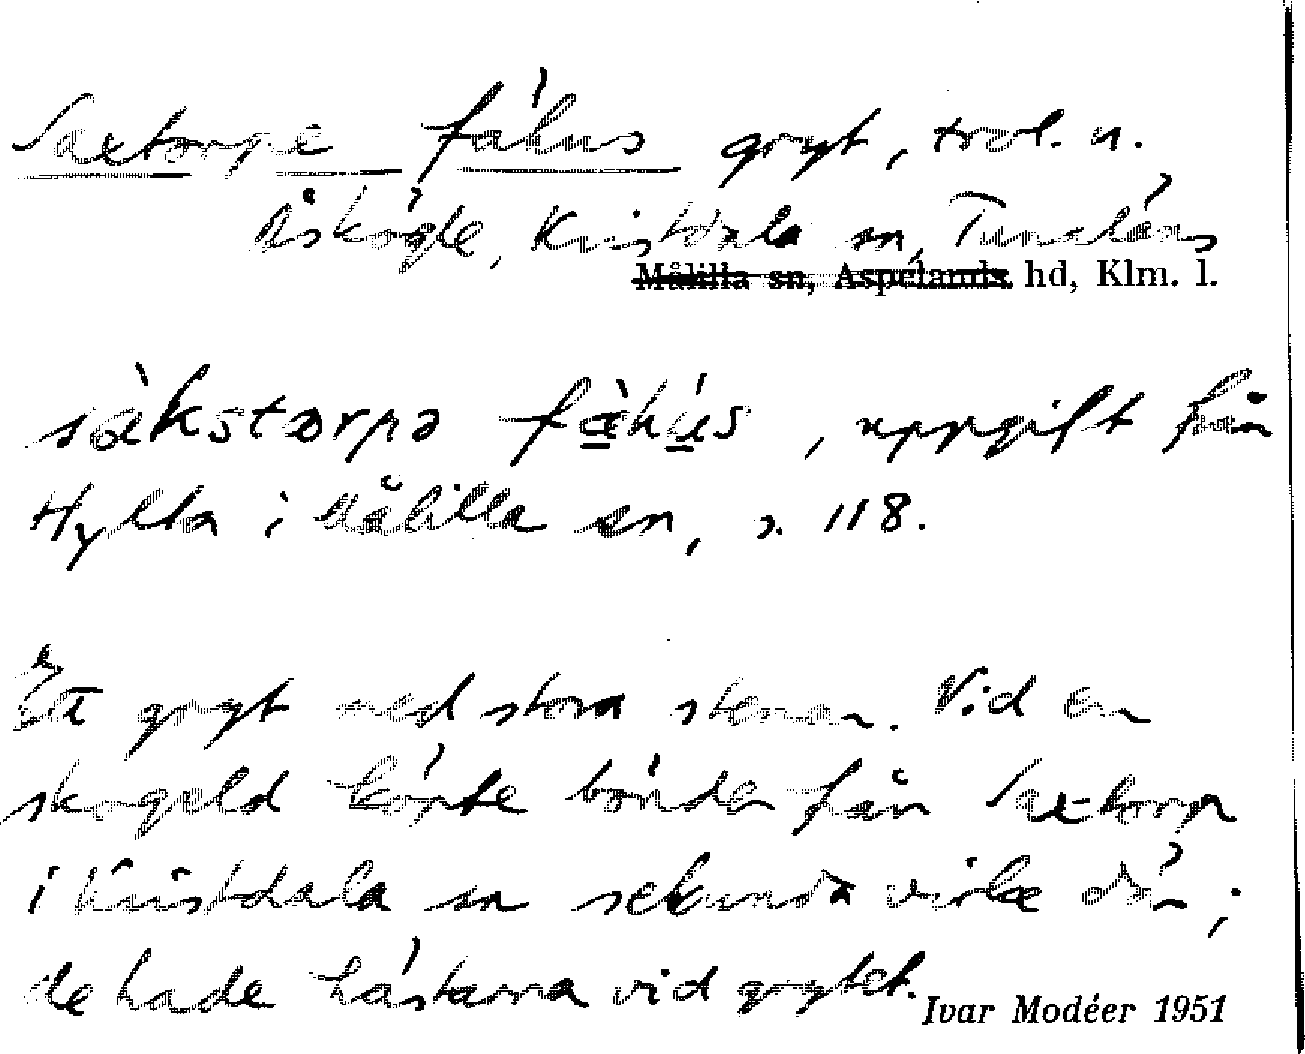 Saxtorpe fähus gryt, trol. u.
Åskögle, Kristdala sn, Tunaläns
Målilla sn, Aspelands hd, Klm. l.
sàkstorpə fǽhús, uppgift från
Hylla i Målilla sn, s. 118.
Ett gryt med stora stenar. Vid en
skogseld köpte bönder från Saxtorp
i Kristdala sn sekunda virke där;
de hade hästarna vid grytet.
Ivar Modéer 1951